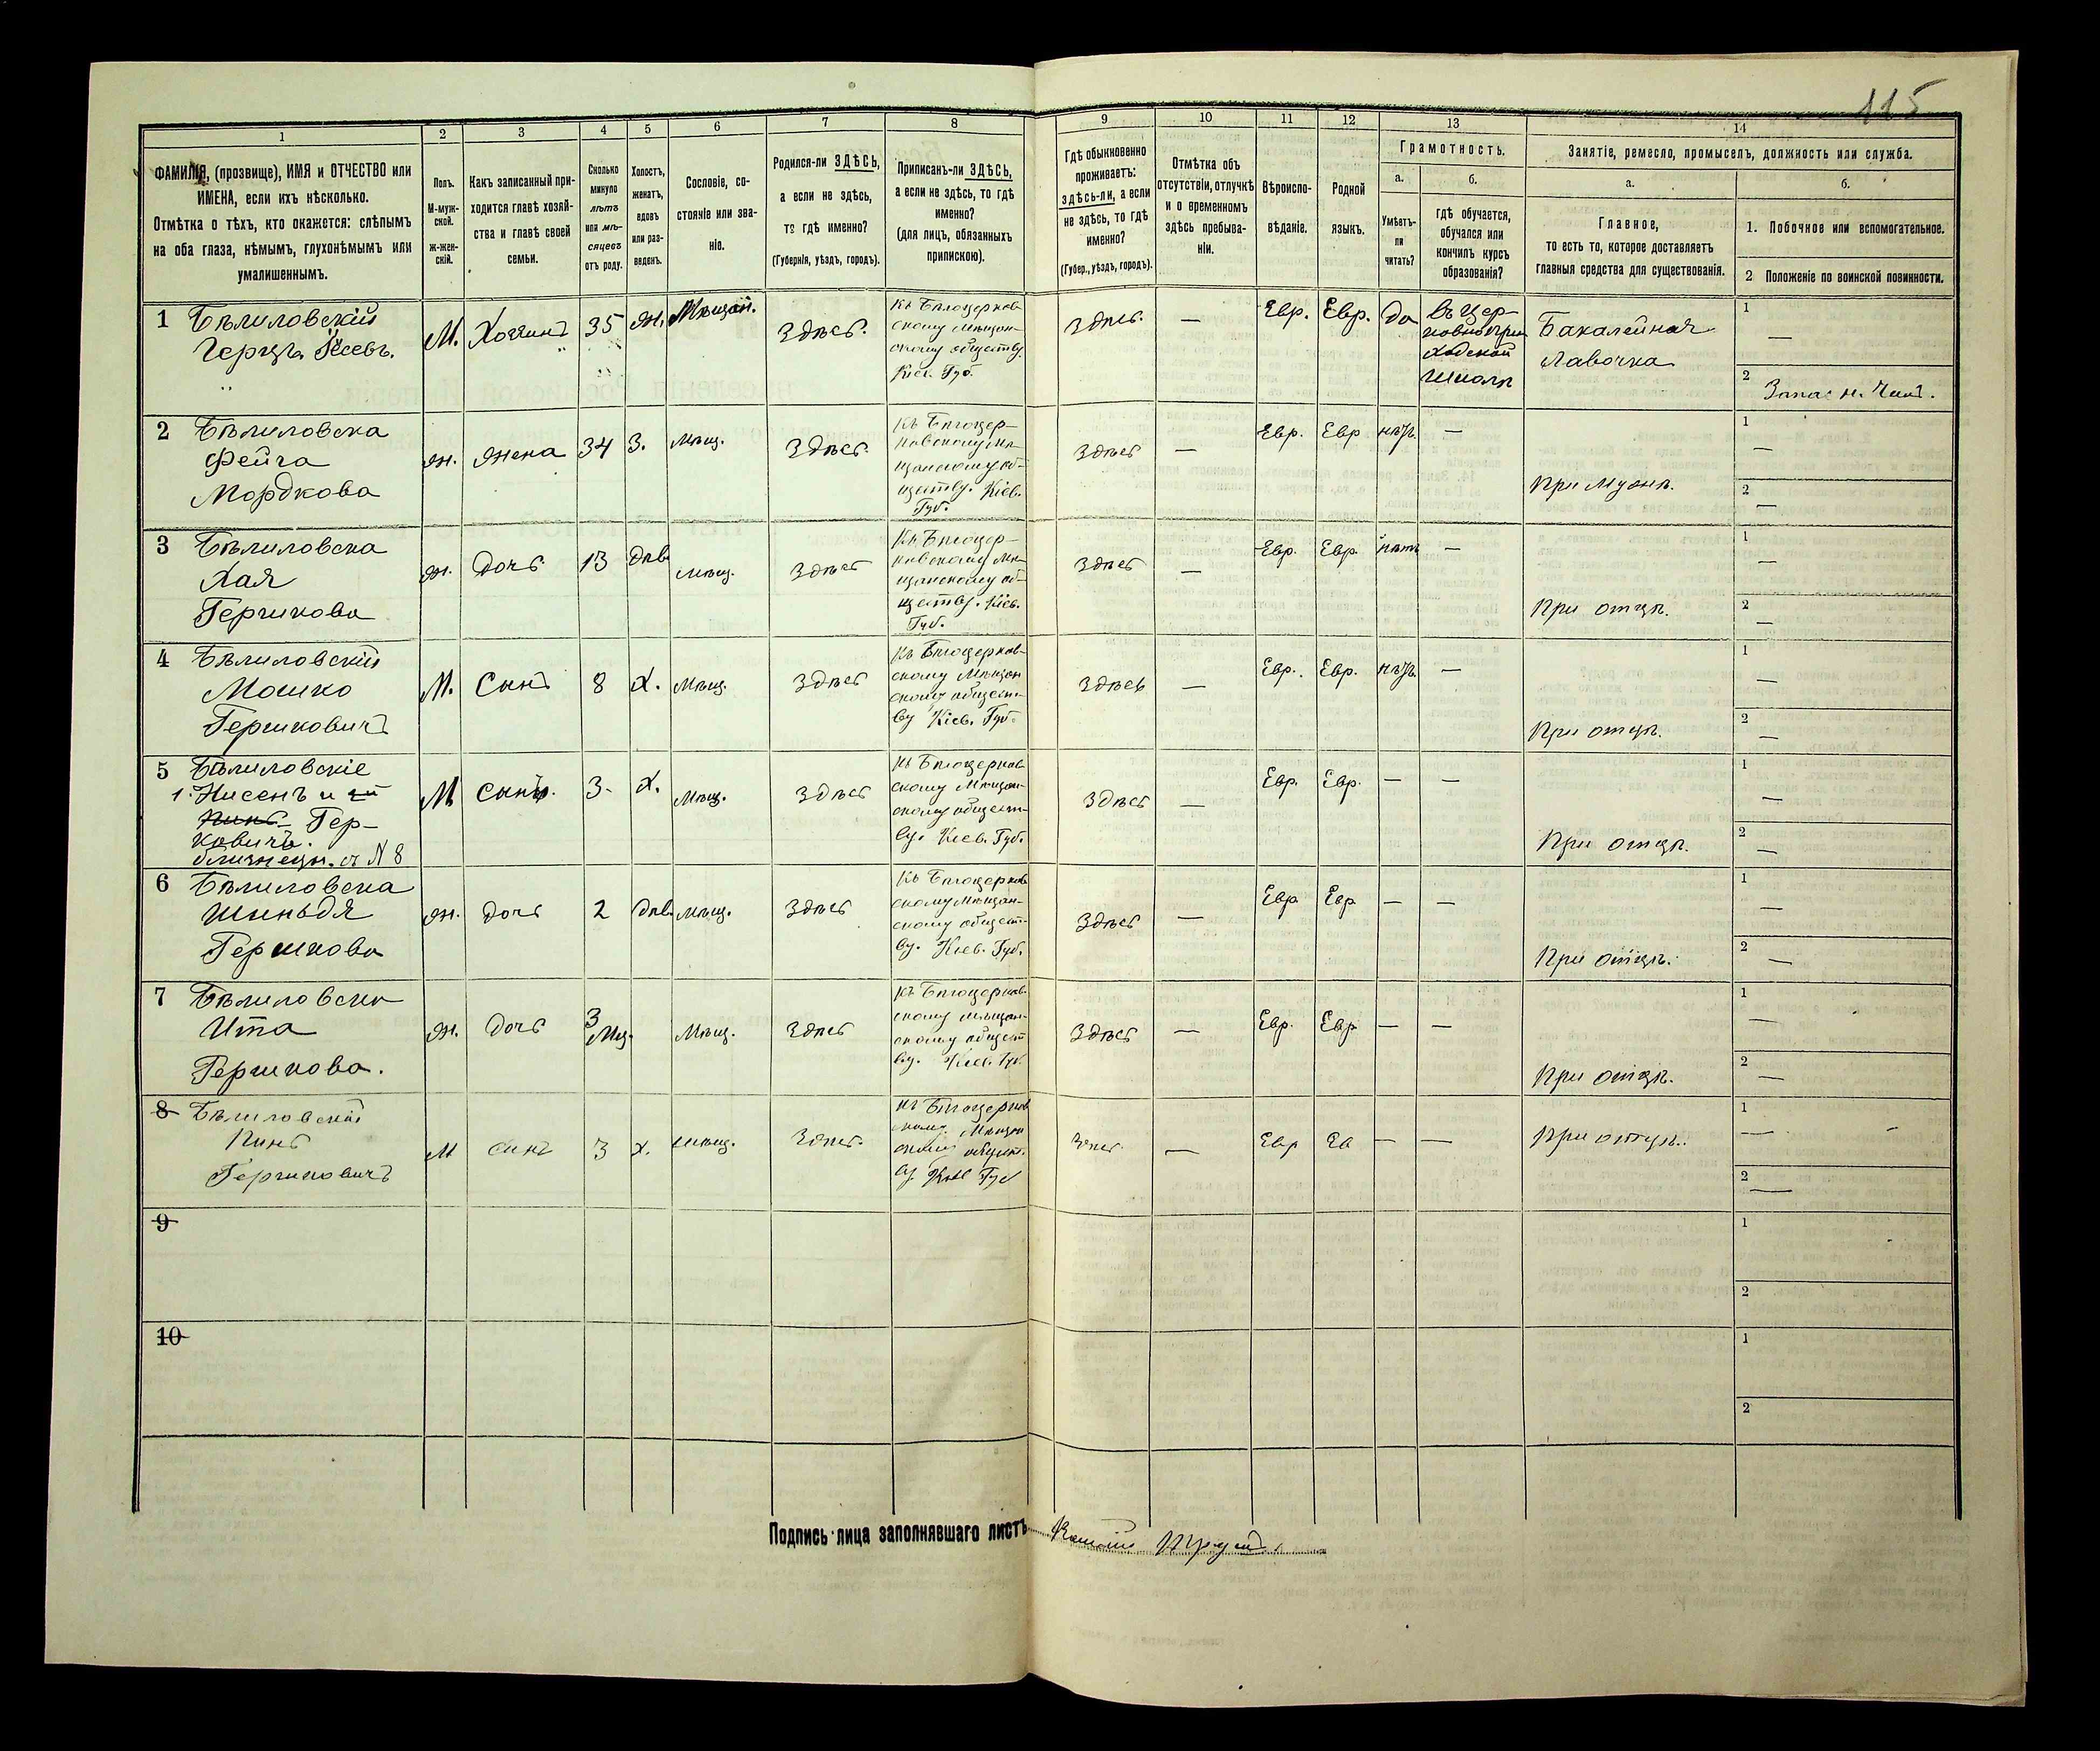 115
1
2
3
4
5
6
7
8
9
10
11
12
13
14
ФАМИЛІЯ, (прозвище), ИМЯ и ОТЧЕСТВО или
ИМЕНА, если ихъ нѣсколько.
Отмѣтка о тѣхъ, кто окажется: слѣпымъ
на оба глаза, нѣмымъ, глухонѣмымъ или
умалишеннымъ.
Полъ.
М-муж-
ской.
Ж-жен-
скій.
Какъ записанный при-
ходится главѣ хозяй-
ства и главѣ своей
семьи.
Сколько
минуло
лѣтъ
или мѣ-
сяцевъ
отъ роду.
Холостъ,
женатъ,
вдовъ
или раз-
веденъ.
Сословіе, со-
стояніе или зва-
ніе.
Родился-ли ЗДѢСЬ,
а если не здѣсь,
то гдѣ именно?
(Губернія, уѣздъ, городъ).
Приписанъ-ли ЗДѢСЬ,
а если не здѣсь, то гдѣ
именно?
(для лицъ, обязанныхъ
припискою).
Гдѣ обыкновенно
проживаетъ:
здѣсь-ли, а если
не здѣсь, то гдѣ
именно?
(Губер., уѣздъ, городъ).
Отмѣтка объ
отсутствіи, отлучкѣ
и о временномъ
здѣсь пребыва-
ніи.
Вѣроиспо-
вѣданіе.
Родной
языкъ.
Грамотность.
а.
Умѣетъ-
ли
читать?
б.
Гдѣ обучается,
обучался или
кончилъ курсъ
образованія?
Занятіе, ремесло, промыселъ, должность или служба.
а.
Главное,
то есть то, которое доставляетъ
главныя средства для существованія.
б.
1. Побочное или вспомогательное.
2 Положеніе по воинской повинности.
1 Бѣлиловскій
Герцъ
М.
Хозяинъ
35
Ж.
Мѣщан.
Здѣсь.
Къ Бѣлоцерков-
скому мѣщан-
скому обществу
Кіев. Губ.
Здѣсь.
—
Евр.
Евр.
Да
Въ цер-
ковноприх
одской
Школѣ
Бакалейная
Лавочка
1
—
2
Запас н. Чинъ.
2 Бѣлиловска
Фейга
Мордкова
Ж.
Жена
34
З.
Мѣщ.
Здѣсь
Къ Бѣлоцер-
ковскому мѣ-
щанскому об-
ществу. Кіев.
Губ.
Здѣсь
—
Евр.
Евр
нѣтъ
—
При Мужѣ.
1
—
2
—
3 Бѣлиловска
Хая
Гершкова
Ж.
Дочь
13
Дѣв.
Мѣщ.
Здѣсь
Къ Бѣлоцер-
ковскому мѣ-
щанскому об-
ществу. Кіев.
Губ.
Здѣсь
—
Евр.
Евр.
нѣтъ
—
При отцѣ.
1
—
2
—
4 Бѣлиловскій
Мошко
Гершковичъ
М.
Сынъ
8
Х.
Мѣщ.
Здѣсь
Къ Бѣлоцерков-
скому Мѣщан
скому общест-
ву Кіев. Губ.
Здѣсь
—
Евр.
Евр.
нѣтъ.
—
При отцѣ.
1
—
2
—
5 Бѣлиловскіе
1. Нисенъ и
Пинь Гер-
ковичъ.
близнецы. съ N 8
М
Сынъ.
3.
Х.
Мѣщ.
Здѣсь
Къ Бѣлоцерков
скому Мѣщан-
скому общест-
ву. Кіев. Губ.
Здѣсь
—
Евр.
Евр.
—
—
При отцѣ.
1
—
2
—
6 Бѣлиловска
Шиньдя
Гершкова
Ж.
Дочь
2
Дѣв.
Мѣщ.
Здѣсь
Къ Бѣлоцерков
скому Мѣщан-
скому общест-
ву. Кіев. Губ.
Здѣсь
—
Евр
Евр
—
—
При отцѣ.
1
—
2
—
7 Бѣлиловска
Ита
Гершкова.
Ж.
Дочь
3
Мц.
Мѣщ.
Здѣсь
Къ Бѣлоцерков.
скому мѣщан-
скому общест
ву. Кіев. Губ.
Здѣсь
—
Евр.
Евр
—
—
При отцѣ.
1
—
2
—
8 Бѣлиловскій
Пинь
Гершковичъ
М
Сынъ
3
Х.
Мѣщ.
Здѣсь.
Къ Бѣлоцерков
скому Мѣщан
скому общест.
ву. Кіев Губ
Здѣсь.
—
Евр
Ев
—
—
При отцѣ.
1
—
2
—
9
1
2
10
1
2
Подпись лица заполнявшаго листъ